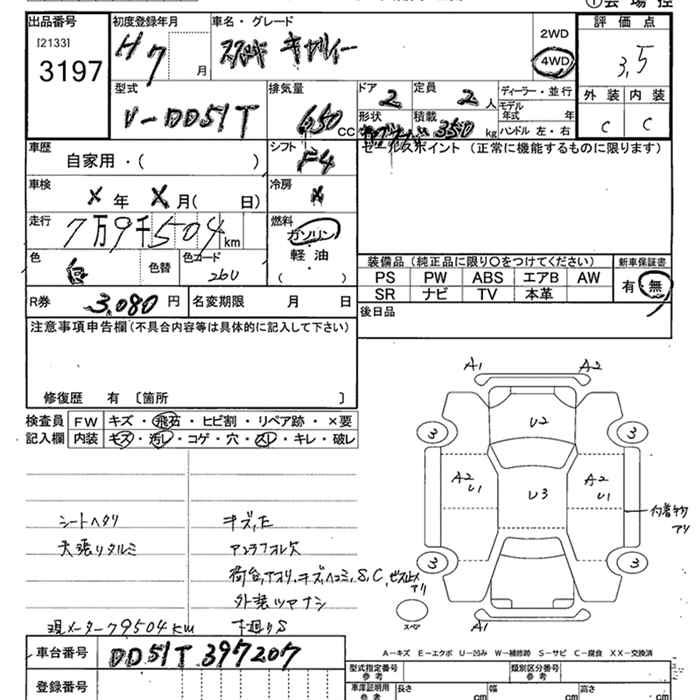 出品番号
[2133]
3197
初度登録年月
H7
月
車名・グレード
キャリイー
2WD
4WD
評価点
3,5
型式
V-DD51T
排気量
650 CC
ドア
2
定員
2人
ディーラー・並行
モデル年式 年
ハンドル 左・右
形状
積載
350 kg
外装
内装
C
C
車歴
自家用・( )
シフト
F4
セールスポイント (正常に機能するものに限ります)
車検
X年X月( 日)
冷房
X
走行
7万9千504 km
燃料
ガソリン
軽油
( )
色
白
色替
色コード
26U
装備品 (純正品に限り○をつけてください)
新車保証書
PS PW ABS エアB AW
SR ナビ TV 本革
有・無
R券
3,080 円
名変期限 月 日
後日品
注意事項申告欄(不具合内容等は具体的に記入して下さい)
修復歴 有 [箇所 ]
検査員
記入欄
FW キズ・飛石・ヒビ割・リペア跡・×要
内装 キズ・汚レ・コゲ・穴・スレ・キレ・破レ
シートヘタリ
天張リタルミ
現メーター79504KM
キズ,E
アンテナ欠
荷台,アオリ,キズ,ヘコミ,S,C,
アリ
外装ツヤナシ
下廻りS
A1
A2
U2
3
3
A2
U1
U3
A2
U1
内着物
アリ
3
3
スペア
A1
A-キズ E-エクボ U-凹み W-補修跡 S-サビ C-腐食 XX-交換済
車台番号
DD51T 397207
登録番号
型式指定番号
参考
類別区分番号
参考
車庫証明用
参考
長さ cm
幅 cm
高さ cm